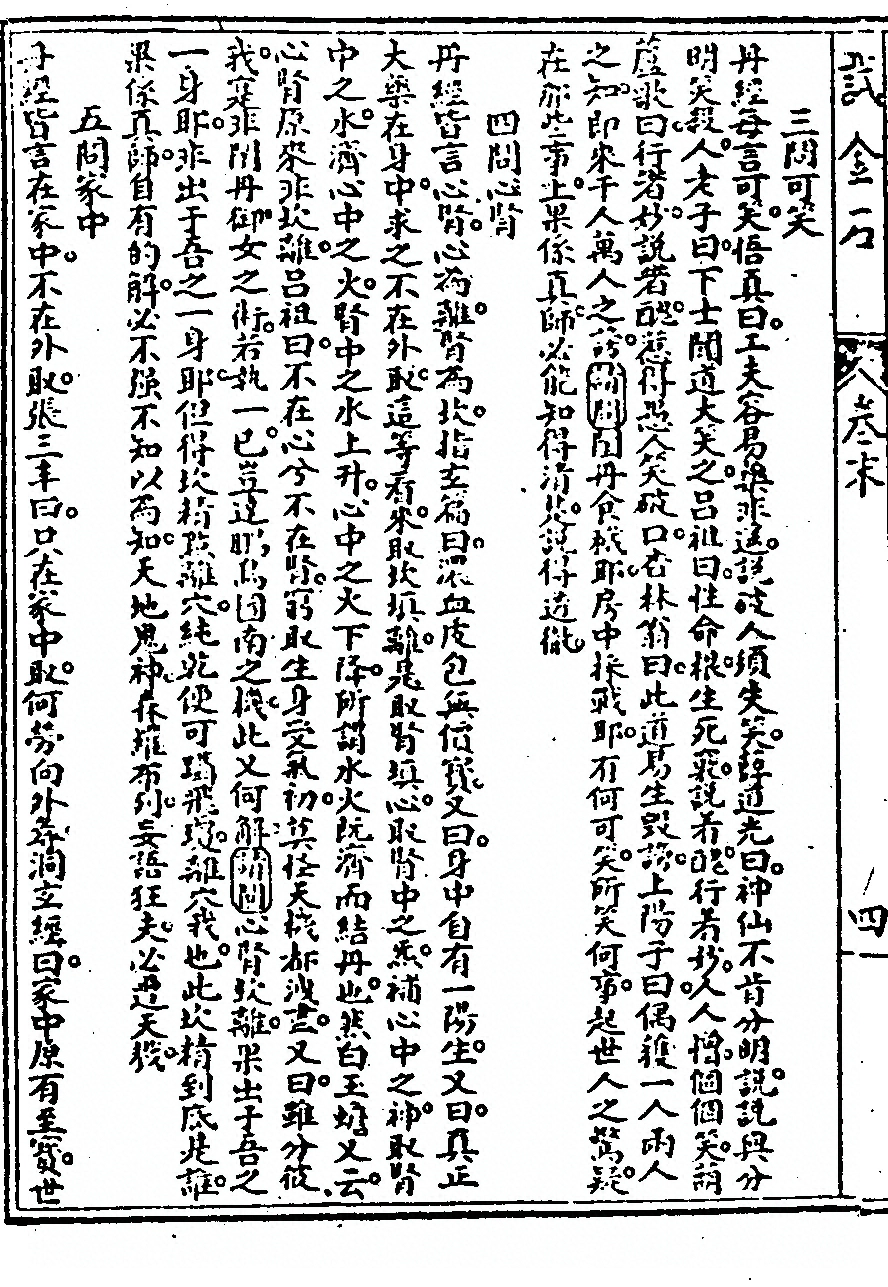 試金石 卷末 四
三問可笑
丹經每言可笑悟真曰工夫容易藥非遙説破人須失笑薛道光曰神仙不肯分明説説與分
明笑殺人老子曰下士聞道大笑之呂祖曰性命根生死竅説着醜行着妙人人憎個個笑翁
葆歌曰行着妙説着醜惹得愚人笑破口杏林翁曰此道易生毀謗上陽子曰偶獲一人兩人
之知即來千人萬人之謗請問閨丹食穢耶房中採戰耶有何可笑所笑何事起世人之驚疑
在那些事上果係真師必能知得清楚説得透徹
四問心腎
丹經皆言心腎心為離腎為坎指玄篇曰濃血皮包無價寶又曰身中自有一陽生又曰真正
大藥在身中求之不在外取這等看來取坎填離是取腎填心取腎中之炁補心中之神取腎
中之水濟心中之火腎中之水上升心中之火下降所謂水火既濟而結丹也然白玉蟾又云
心腎原來非坎離呂祖曰不在心兮不在腎窮取生身受氣初莫怪天機都洩盡又曰雖分彼
我寔非閨丹御女之術若執一己豈達鵬鳥圖南之機此又何解請問心腎坎離果出于吾之
一身耶非出于吾之一身耶但得坎精點離穴純乾便可躡飛瓊離穴我也此坎精到底是誰
果係真師自有的解必不強不知以為知天地鬼神森羅布列妄語狂夫必遭天殺
五問家中
丹經皆言在家中不在外取張三丰曰只在家中取何勞向外尋洞玄經曰家中原有至寶世